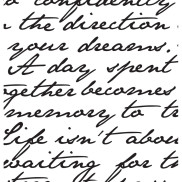 o confidently
n the direction
your dreams.
A day spent
together becomes
memory to tr
Life isn't abou
waiting for th